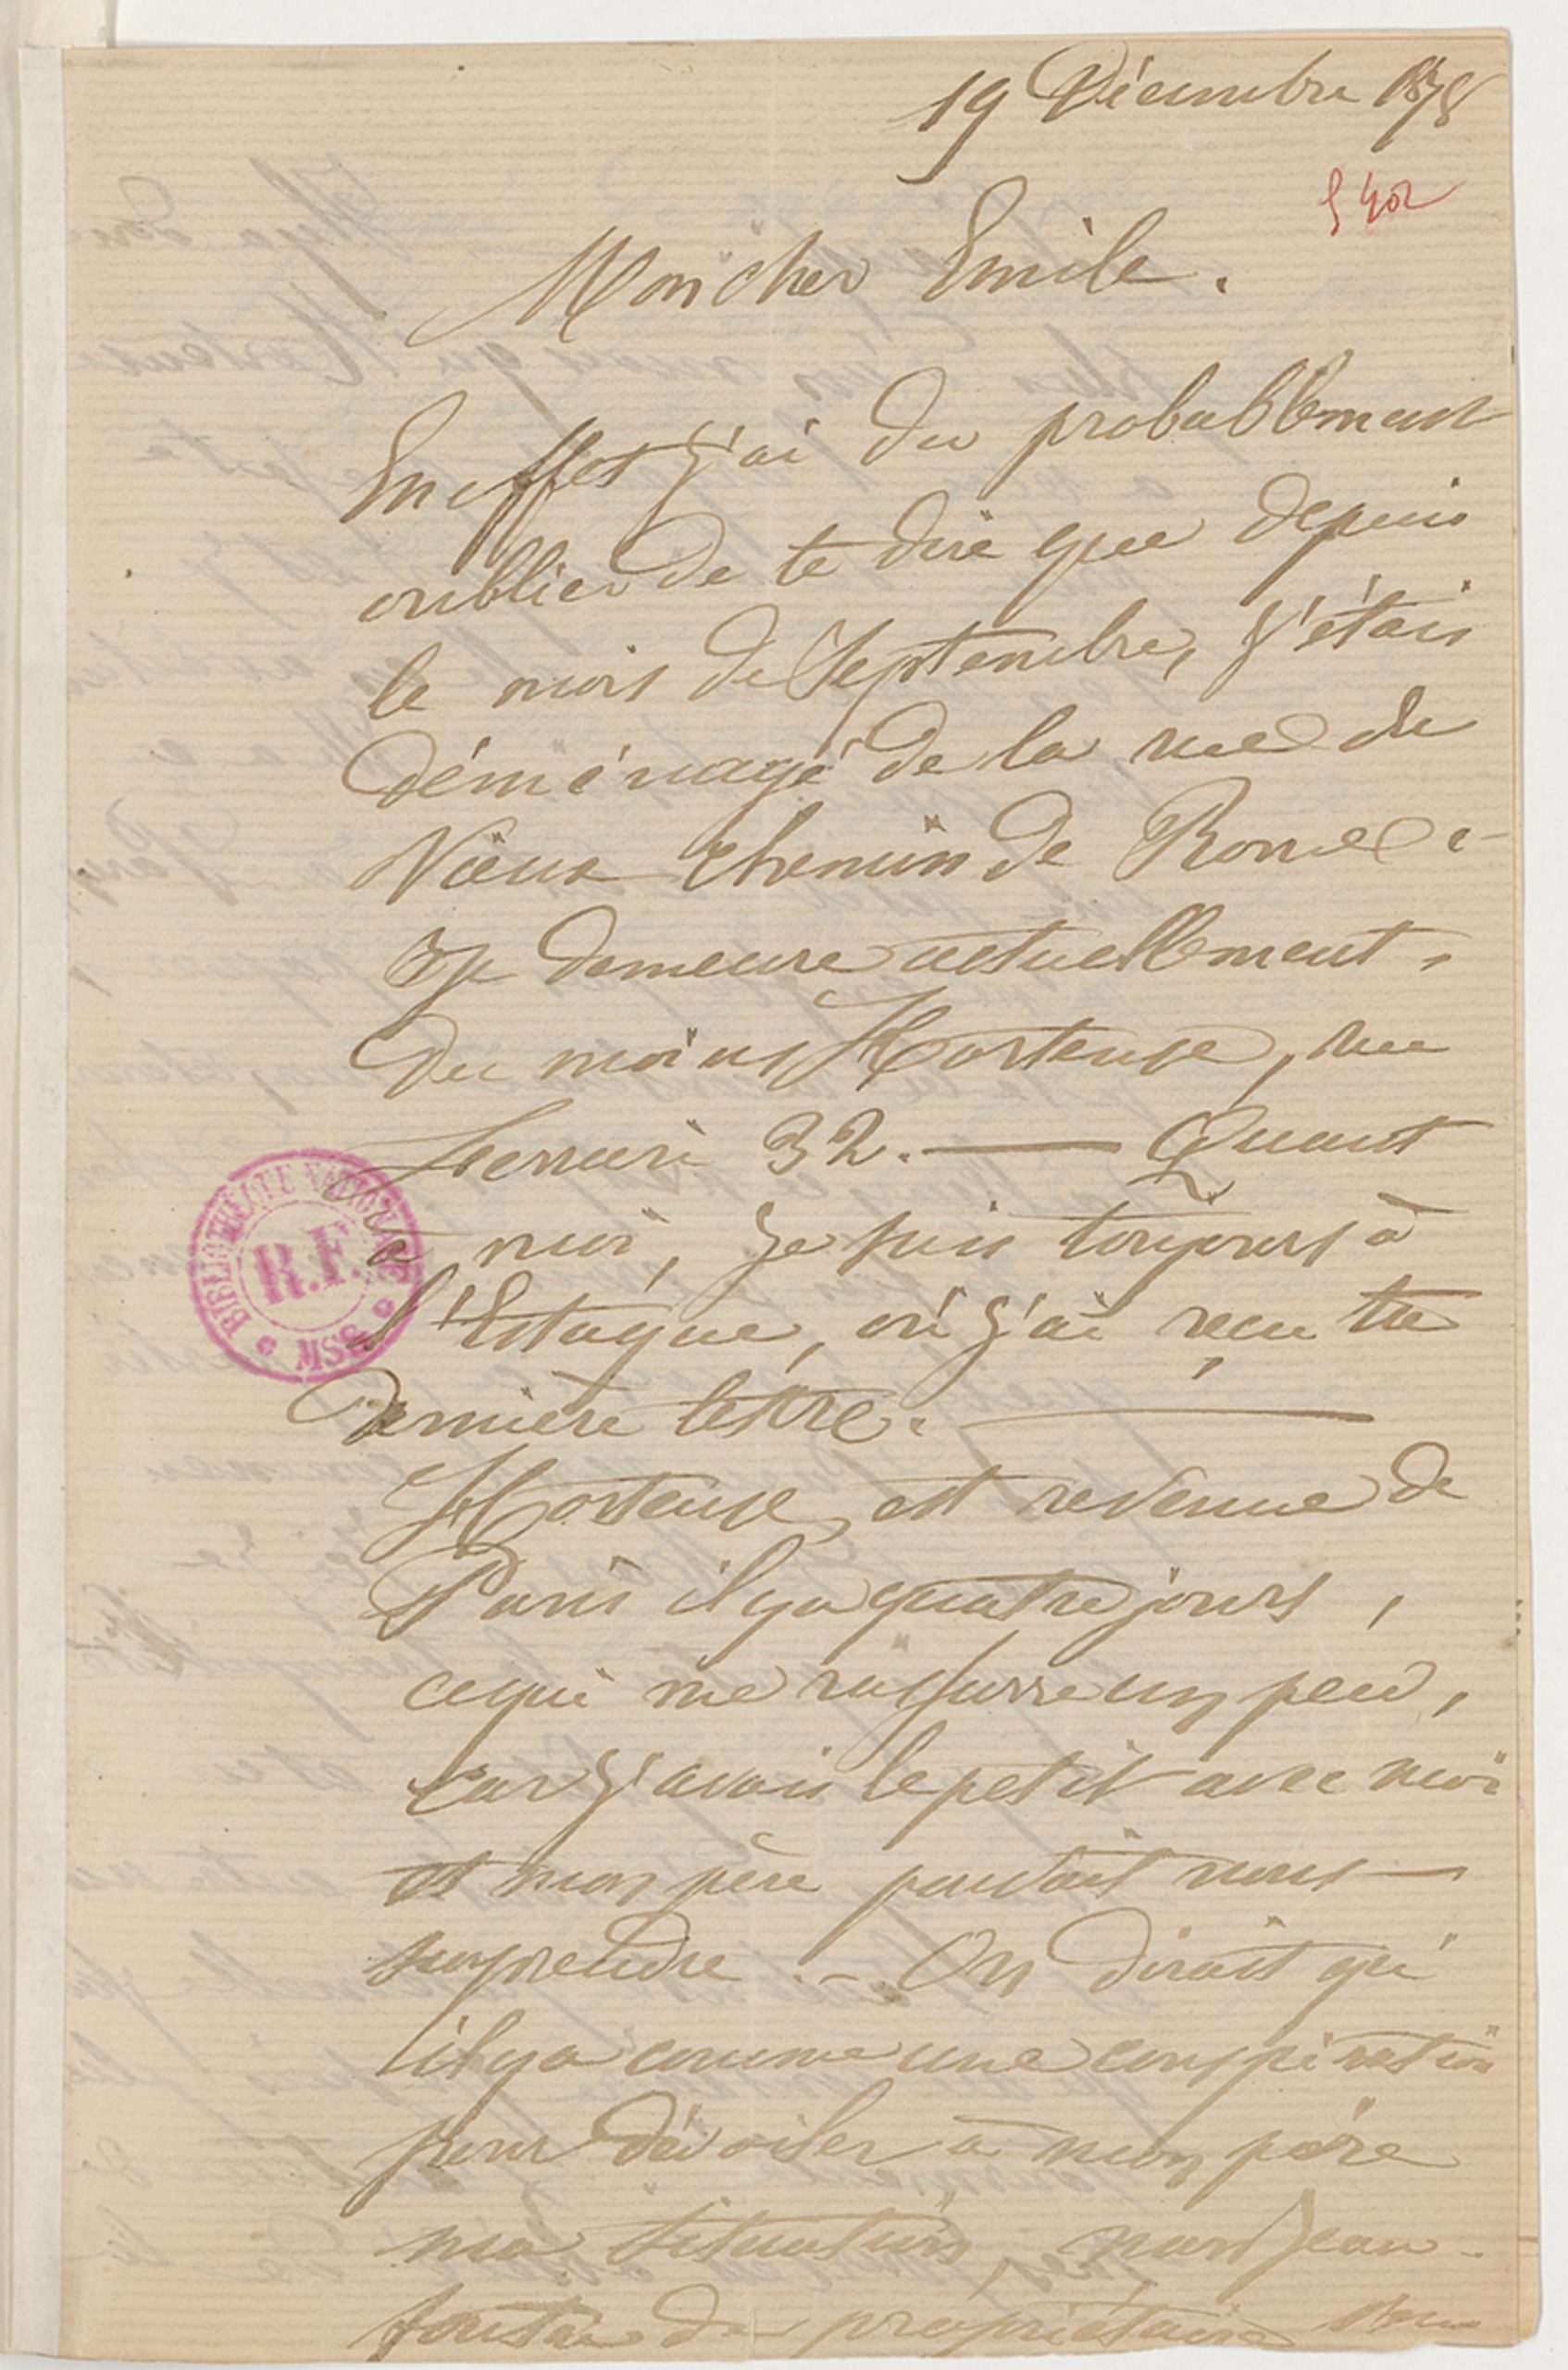 19 Décembre 1878
5402
Mon cher Emile.
En effet j'ai du probablement
oublier de te dire que depuis
le mois de Septembre, j'étais
déménagé de la rue du
Vieux chemin de Rome -
Je demeure actuellement,
du moins Hortense, rue
Ferrari 32. — Quant
à moi, je suis toujours à
l'Estaque, où j'ai reçu ta
dernière lettre. —
Hortense, est revenue de
Paris il y a quatre jours,
ce qui me rassure un peu,
car j'avais le petit avec moi
et mon père pouvait nous —
surprendre. — On dirait qu'
il y a comme une conspiration
pour dévoiler à mon père
ma situation, mon Jean-
foutre de propriétaire
BIBLIOTHÈQUE NATIONALE
R.F.
MSS